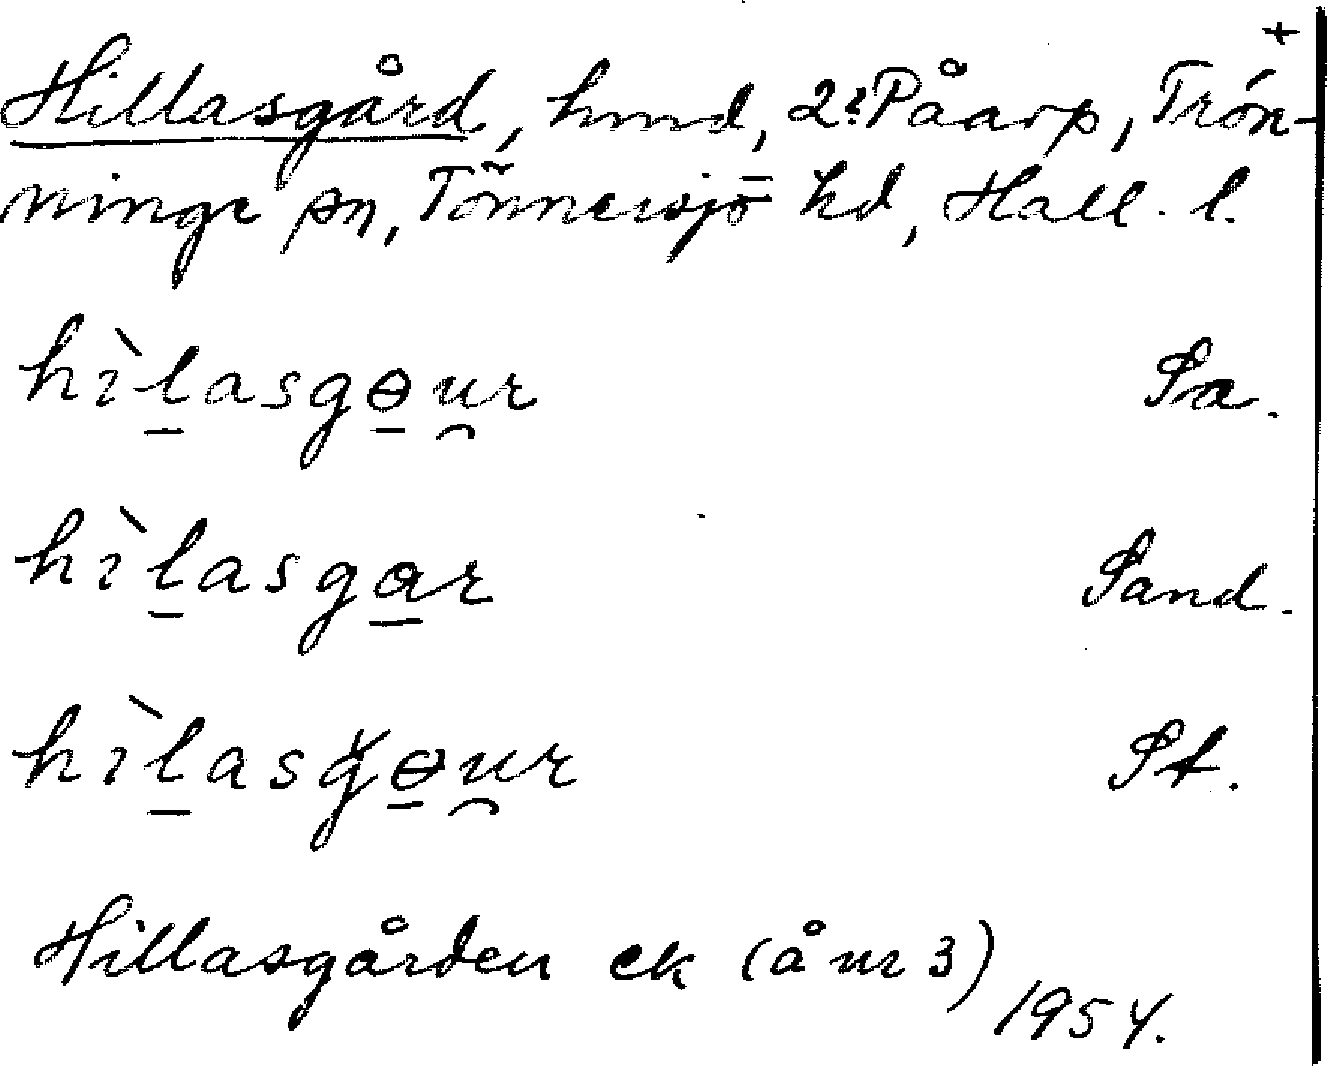 +
Hillasgård, hmd, 2:Påarp, Trön-
ninge sn, Tönnersjö hd, Hall. l.
hìlasgɵur Sa.
hìlasgar Sand.
hìlasgɵur St.
Hillasgården ek (å nr 3)
1954.